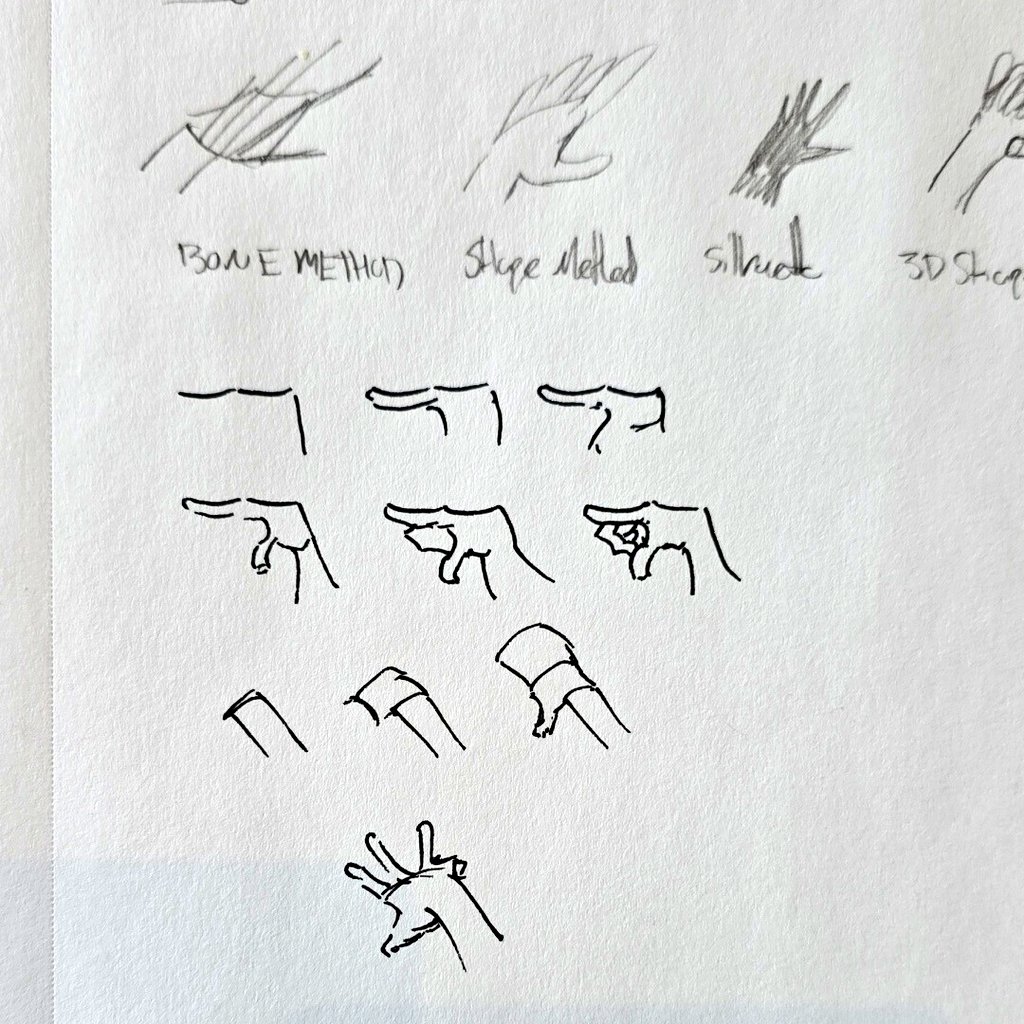 BONE METHOD
Shape Method
Silhuette
3D Shap